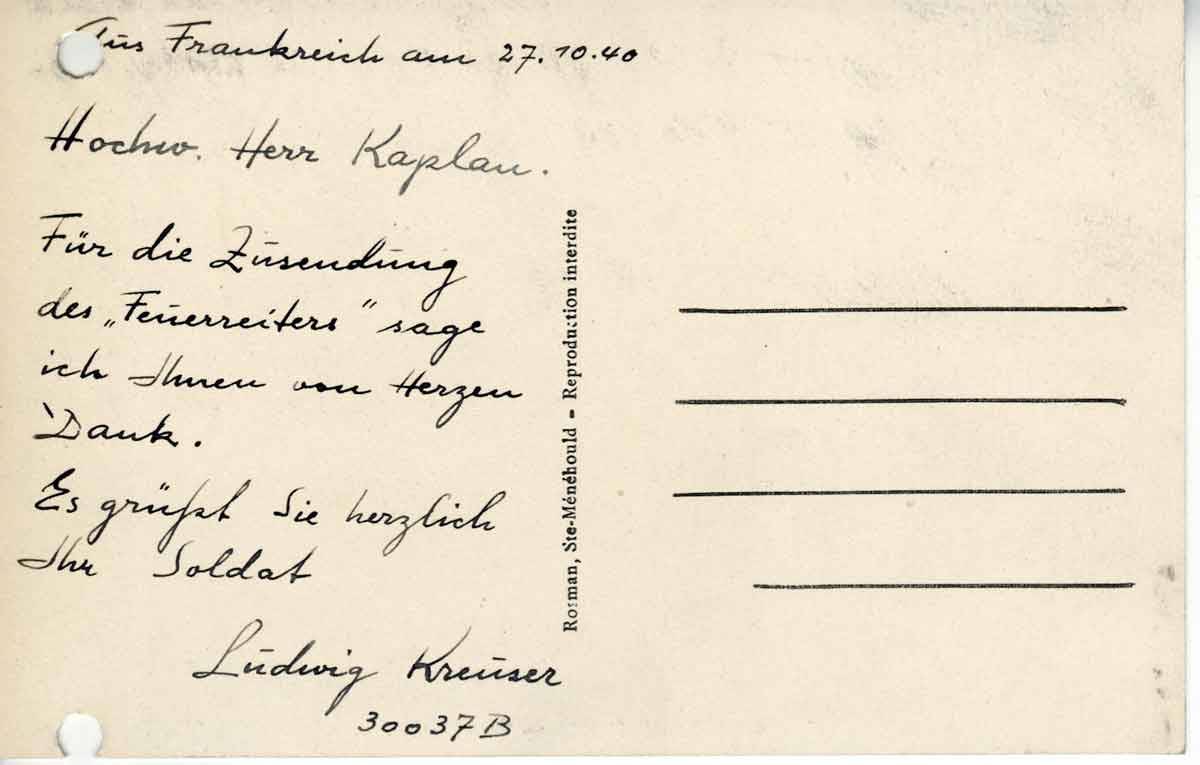 Aus Frankreich am 27.10.40
Hochw. Herr Kaplan.
Für die Zusendung
des „Feuerreiters" sage
ich Ihnen von Herzen
Dank.
Es grüßt Sie herzlich
Ihr Soldat
Ludwig Kreuser
30037B
Rosman, Ste-Ménéhould - Reproduction interdite